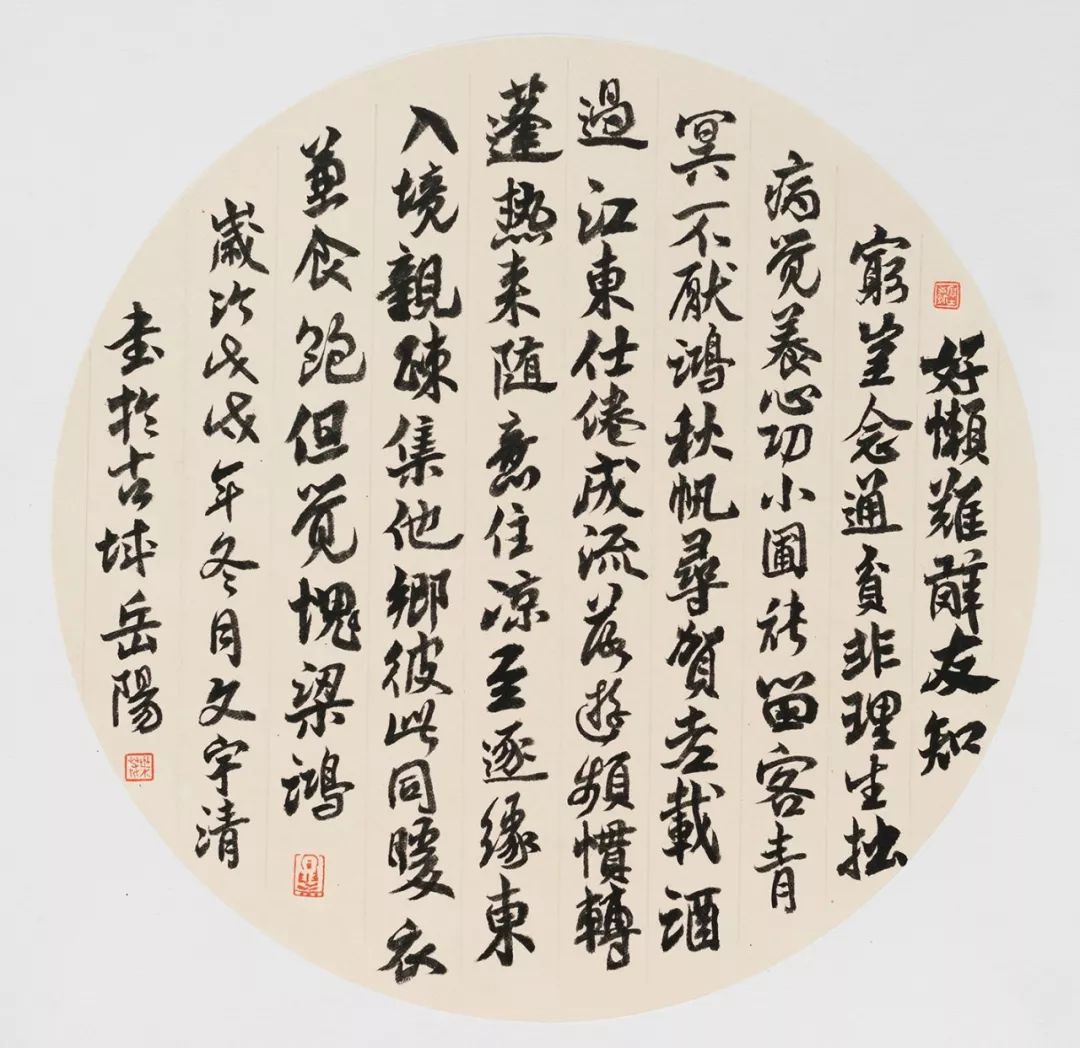 好懶難辭友知
窮豈念通貧非理生拙
病觉養心功小圃能留客青
冥不厭鴻秋帆尋賀老載酒
過江東仕倦成流落遊頻慣轉
蓬熱来随意住凉至逐緣東
入境親疎集他鄉彼此同暖衣
兼食飽但觉愧梁鴻
歲次戊戌年冬月文宇清
書於古城岳陽